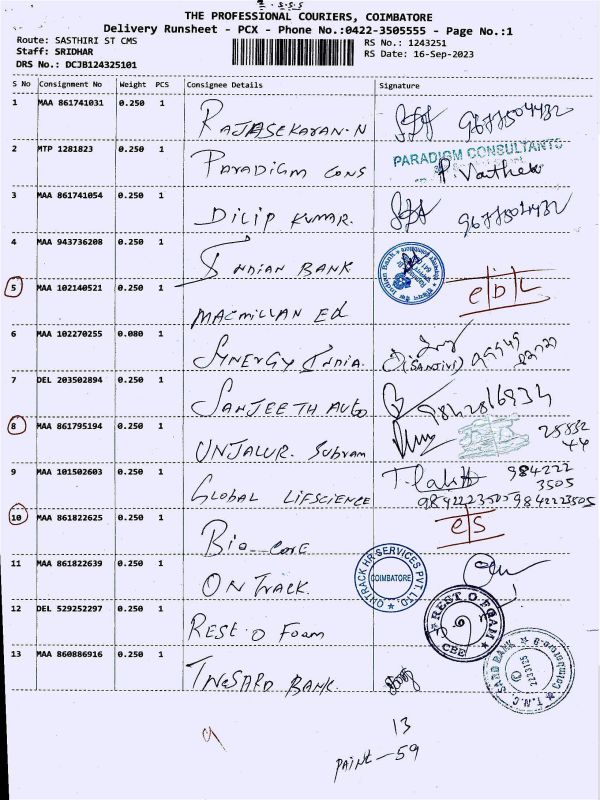 THE PROFESSIONAL COURIERS, COIMBATORE
Delivery Runsheet - PCX - Phone No.:0422-3505555 - Page No.:1
Route: SASTHIRI ST CMS RS No.: 1243251
Staff: SRIDHAR RS Date: 16-Sep-2023
DRS No.: DCJB124325101
S No Consignment No Weight PCS Consignee Details Signature
1 MAA 861741031 0.250 1 RAJASEKARAN.N 9677504432
2 MTP 1281823 0.250 1 PARADIGM CONS PARADIGM CONSULTANTS
3 MAA 861741054 0.250 1 DILIP KUMAR. 9677504432
4 MAA 943736208 0.250 1 INDIAN BANK
5 MAA 102140521 0.250 1 MACMILLAN Ed
6 MAA 102270255 0.080 1 SYNERGY INDIA. (SANJIVI)
7 DEL 203502894 0.250 1 SANJEETH AUTO
8 MAA 861795194 0.250 1 UNJALUR. Subram
9 MAA 101502603 0.250 1 GLOBAL LIFSCIENCE 984222
3505
9842223505 9842223505
10 MAA 861822625 0.250 1 Bio-core
11 MAA 861822639 0.250 1 ON TRACK. ONTRACK HR SERVICES PVT. LTD. COIMBATORE
12 DEL 529252297 0.250 1 REST O Foam REST O FOAM CBE
13 MAA 860886916 0.250 1 TNGSARD BANK.
13
PAINT - 59